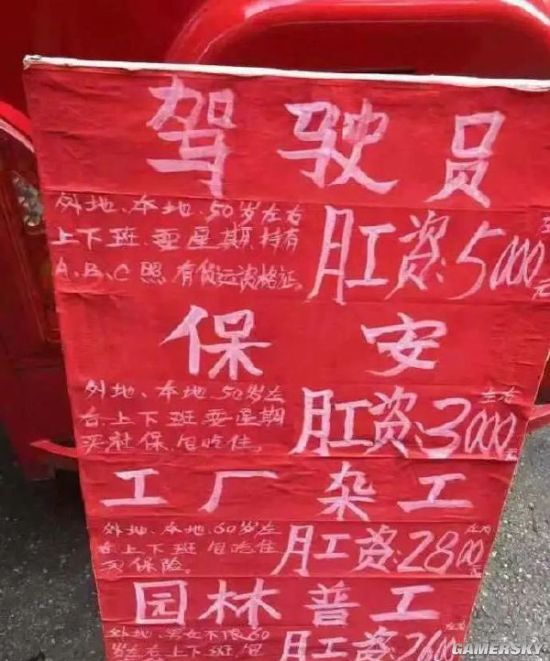 驾驶员
外地、本地、50岁左右
上下班、耍星期、持有
A、B、C照 有货运资格证。
月工资:5000元
保安
外地、本地、50岁左
右、上下班 耍星期
买社保、包吃住。
月工资:3000左右元
工厂杂工
外地、本地、60岁左
右上下班 包吃住
买保险。
月工资:2800左右元
园林普工
外地、男女不限60
岁左右上下班、包
月工资:260
GAMERSKY